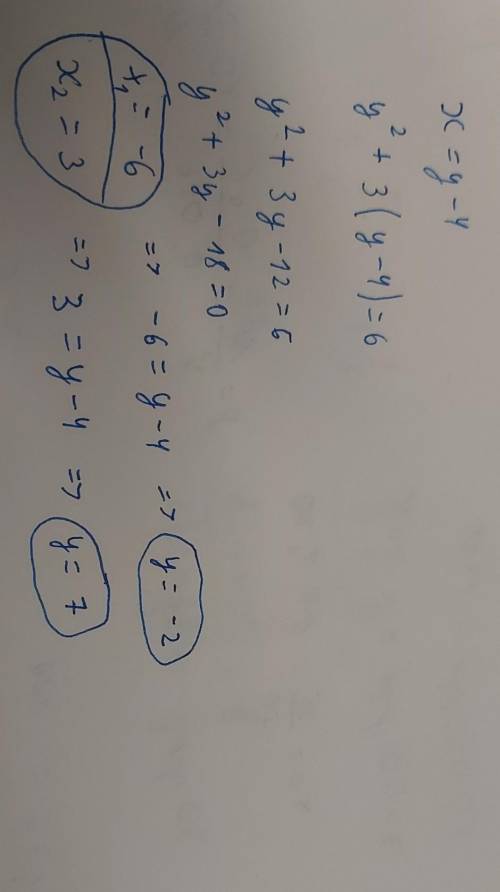 x = y - 4
y² + 3(y - 4) = 6
y² + 3y - 12 = 6
y² + 3y - 18 = 0
x₁ = -6 => -6 = y - 4 => y = -2
x₂ = 3 => 3 = y - 4 => y = 7